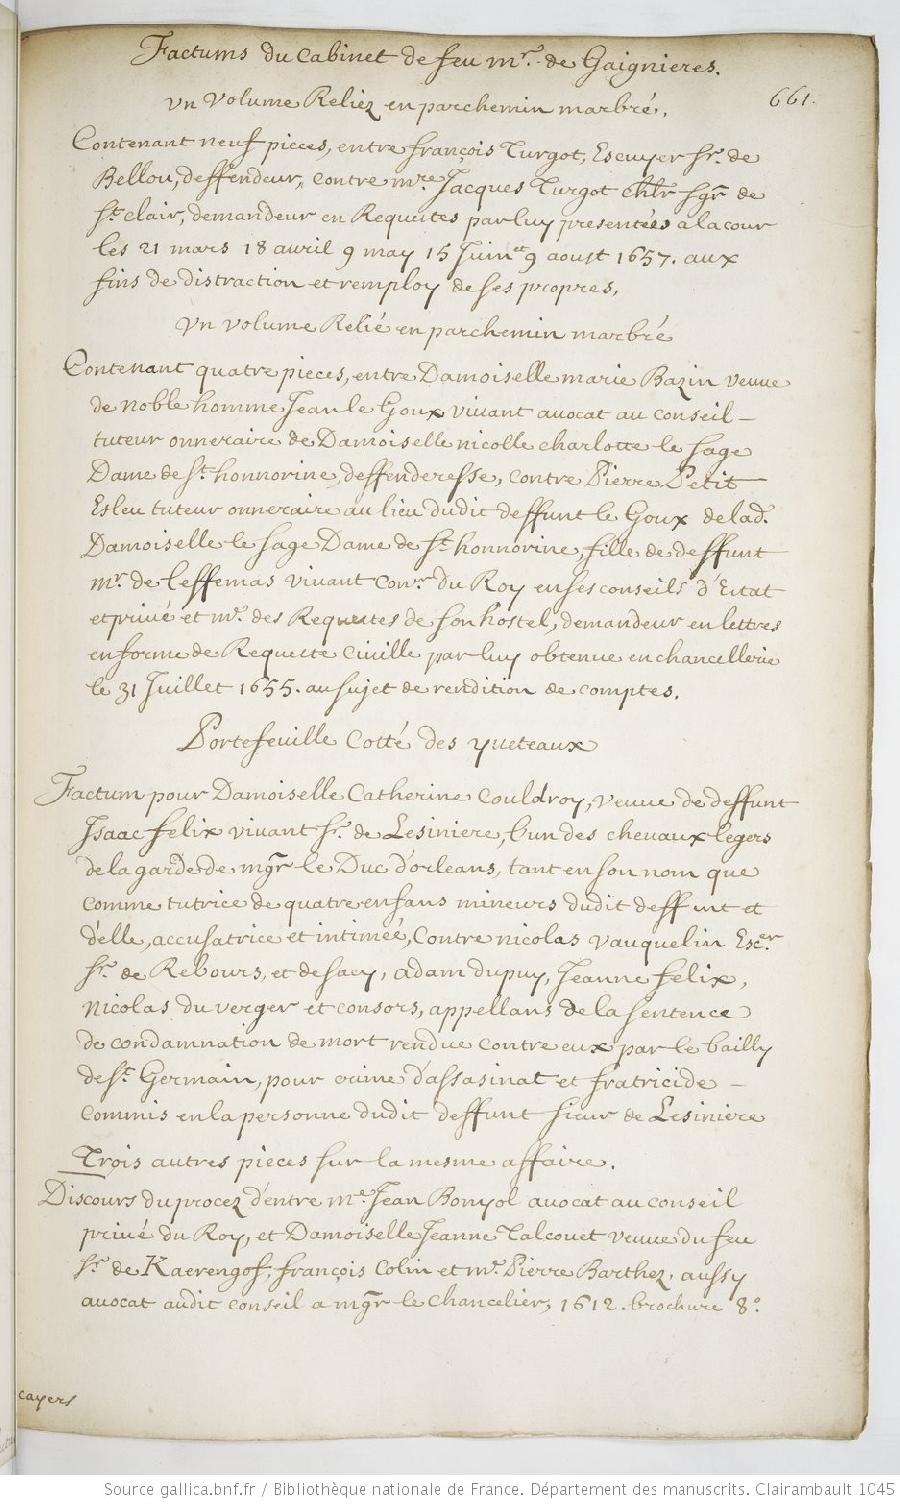 Factums du Cabinet de feu mr. de Gaignieres.
661.
Un Volume Reliez en parchemin marbré.
Contenant neuf pieces, entre françois Turgot, Escuyer sr. de
Bellou, deffendeur, contre mre. Jacques Turgot chlr sgr de
st. clair, demandeur en Requestes par luy presentées a la cour
les 21 mars 18 avril 9 may 15 Juin et 9 aoust 1657. aux
fins de distraction et remploy de ses propres.
Un volume Relié en parchemin marbré
Contenant quatre pieces, entre Damoiselle marie Bazin veuve
de noble homme Jean le Goux vivant avocat au conseil
tuteur onneraire de Damoiselle nicolle charlotte le sage
Dame de st. honnorine, deffenderesse, contre Pierre Petit
Esleu tuteur onneraire au lieu dudit deffunt le Goux de lad.
Damoiselle le sage Dame de st. honnorine, fille de deffunt
mr. de leffemas vivant conr. du Roy en ses conseils d'Estat
et privé et me. des Requestes de son hostel, demandeur en lettres
en forme de Requeste Civille par luy obtenue en chancellerie
le 31 Juillet 1655. au sujet de rendition de comptes.
Portefeuille Cotté des yveteaux
Factum pour Damoiselle Catherine Couldroy, veuve de deffunt
Isaac felix vivant sr. de Lesiniere, l'un des chevaux legers
de la garde de mgr le Duc d'orleans, tant en son nom que
comme tutrice de quatre enfans mineurs dudit deffunt et
d'elle, accusatrice et intimée, Contre nicolas vauquelin Escer.
sr. de Rebours, et de sacy, adam dupuy, Jeanne felix,
nicolas du verger et consors, appellans de la sentence
de condamnation de mort rendue contre eux par le bailly
de st. Germain, pour crime d'assasinat et fratricide
commis en la personne dudit deffunt sieur de Lesiniere
Trois autres pieces sur la mesme affaire.
Discours du procez d'entre me. Jean Bonyol avocat au conseil
privé du Roy, et Damoiselle Jeanne Talcouet veuve du feu
sr. de Kaerengof, françois Colin et me. Pierre Barthez, aussy
avocat audit conseil a mgr le Chancelier, 1612. brochure 8°
cayers
Source gallica.bnf.fr / Bibliothèque nationale de France. Département des manuscrits. Clairambault 1045